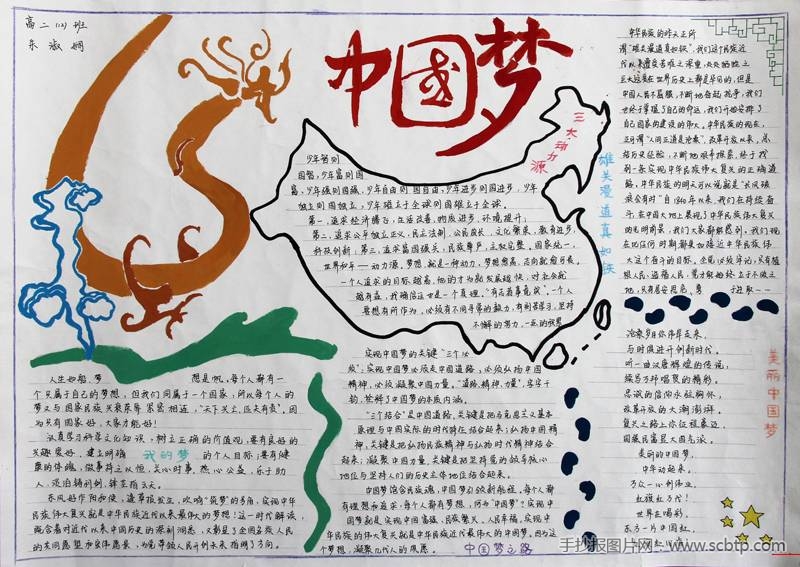 高二(12)班
朱淑娴
中国梦
三大动力源
少年智则
国智，少年富则国
富，少年强则国强，少年自由则国自由，少年进步则国进步，少年
独立则国独立，少年雄立于全球则国雄立于全球。
第一，追求经济腾飞，生活改善，物质进步，环境提升；
第二，追求公平独立正义，民主法制，公民成长，文化繁荣，教育进步，
科技创新；第三，追求富国强兵，民族尊严，主权完整，国家统一，
世界和平——动力源。梦想就是一种动力，梦想愈高，志向就愈可贵。
一个人追求的目标越高，他的才力就发展越快，对社会就
越有益，我确信这也是一个真理。"有志者事竟成"，一个人
要想有所作为，必须有不同寻常的毅力，有刻苦学习，坚持
不懈的努力，一定的我想
雄关漫道真如铁
中华民族的昨天正所
谓"雄关漫道真如铁"，我们这个民族近
代以来遭受苦难之深重，
在世界历史上都是罕见的，但是
中国人民不屈服，不断地奋起抗争，我们
终于掌握了自己的命运，我们开始安排了
自己国家的建设的伟大。中华民族的现在，
正所谓"人间正道是沧桑"，改革开放以来，总
结历史经验，不断地艰辛探索，终于找
到一条实现中华民族伟大复兴的正确道
路，中华民族的明天可以说就是"长风破
浪会有时"自1840年以来，我们在持续奋
斗，在中国大地上展现了中华民族伟大复兴
的光明前景，我们大家都能感到，我们现
在比任何时期都更加接近中华民族伟
大这个奋斗的目标。
人生如船，梦想是帆，每个人都有一
个只属于自己的梦想，但我们同属于一个国家，所以每个人的
梦又与国家民族兴衰荣辱紧紧相连，"天下兴亡，匹夫有责"，因
为只有国家好，大家才能好！
认真学习科学文化知识，树立正确的价值观，要有良好的
兴趣爱好，建立明确的个人目标，要有健
我的梦
康的体魄，做事持之以恒，关心时事，热心公益，乐于助
人，淡泊名利，锋芒指三天。
东风好作阳和使，逢草逢花报发生。吹响"筑梦"的号角，实现中华
民族伟大复兴就是中华民族近代以来最伟大的梦想！这一时代解读，
既饱含着对近代以来中国历史的深刻洞悉，又彰显了全国各族人民
的共同愿望和宏伟愿景，为党带领人民开创未来指明了方向。
实现中国梦的关键"三个必
须"：实现中国梦必须走中国道路，必须弘扬中国
精神，必须凝聚中国力量。"道路，精神，力量"，字字千
钧，诠释了中国梦的本质内涵。
"三个结合"是中国道路，关键是把马克思主义基本
原理与中国实际的时代特征结合起来；弘扬中国精
神，关键是把弘扬民族精神与弘扬时代精神结合
起来；凝聚中国力量，关键是把坚持党的领导核心
地位与坚持人们的历史主体地位结合起来。
中国梦饱含民族魂，中国梦引领新航程，每个人都
有理想和追求，每个人都有梦想，何为"中国梦"？实现中
国梦就是实现中国富强，民族复兴，人民幸福，实现中
华民族的伟大复兴就是中华民族近代最伟大的中国梦。因为这
个梦想，凝聚几代人的夙愿。
中国梦之路
沧桑岁月你伟岸走来，
与时俱进开创新时代。
听一曲汉唐辉煌的传说，
续写万种唱赞的精彩。
忠诚的信仰永放胸怀，
改革开放的大潮澎湃。
复兴之路上你征程豪迈，
国强民富显大国气派。
美丽的中国梦，
中华动起来。
万众一心创伟业，
红旗扛万代！
世界在唱彩，
东方一片中国红，
美丽中国梦
手抄报图片网-www.scbtp.com